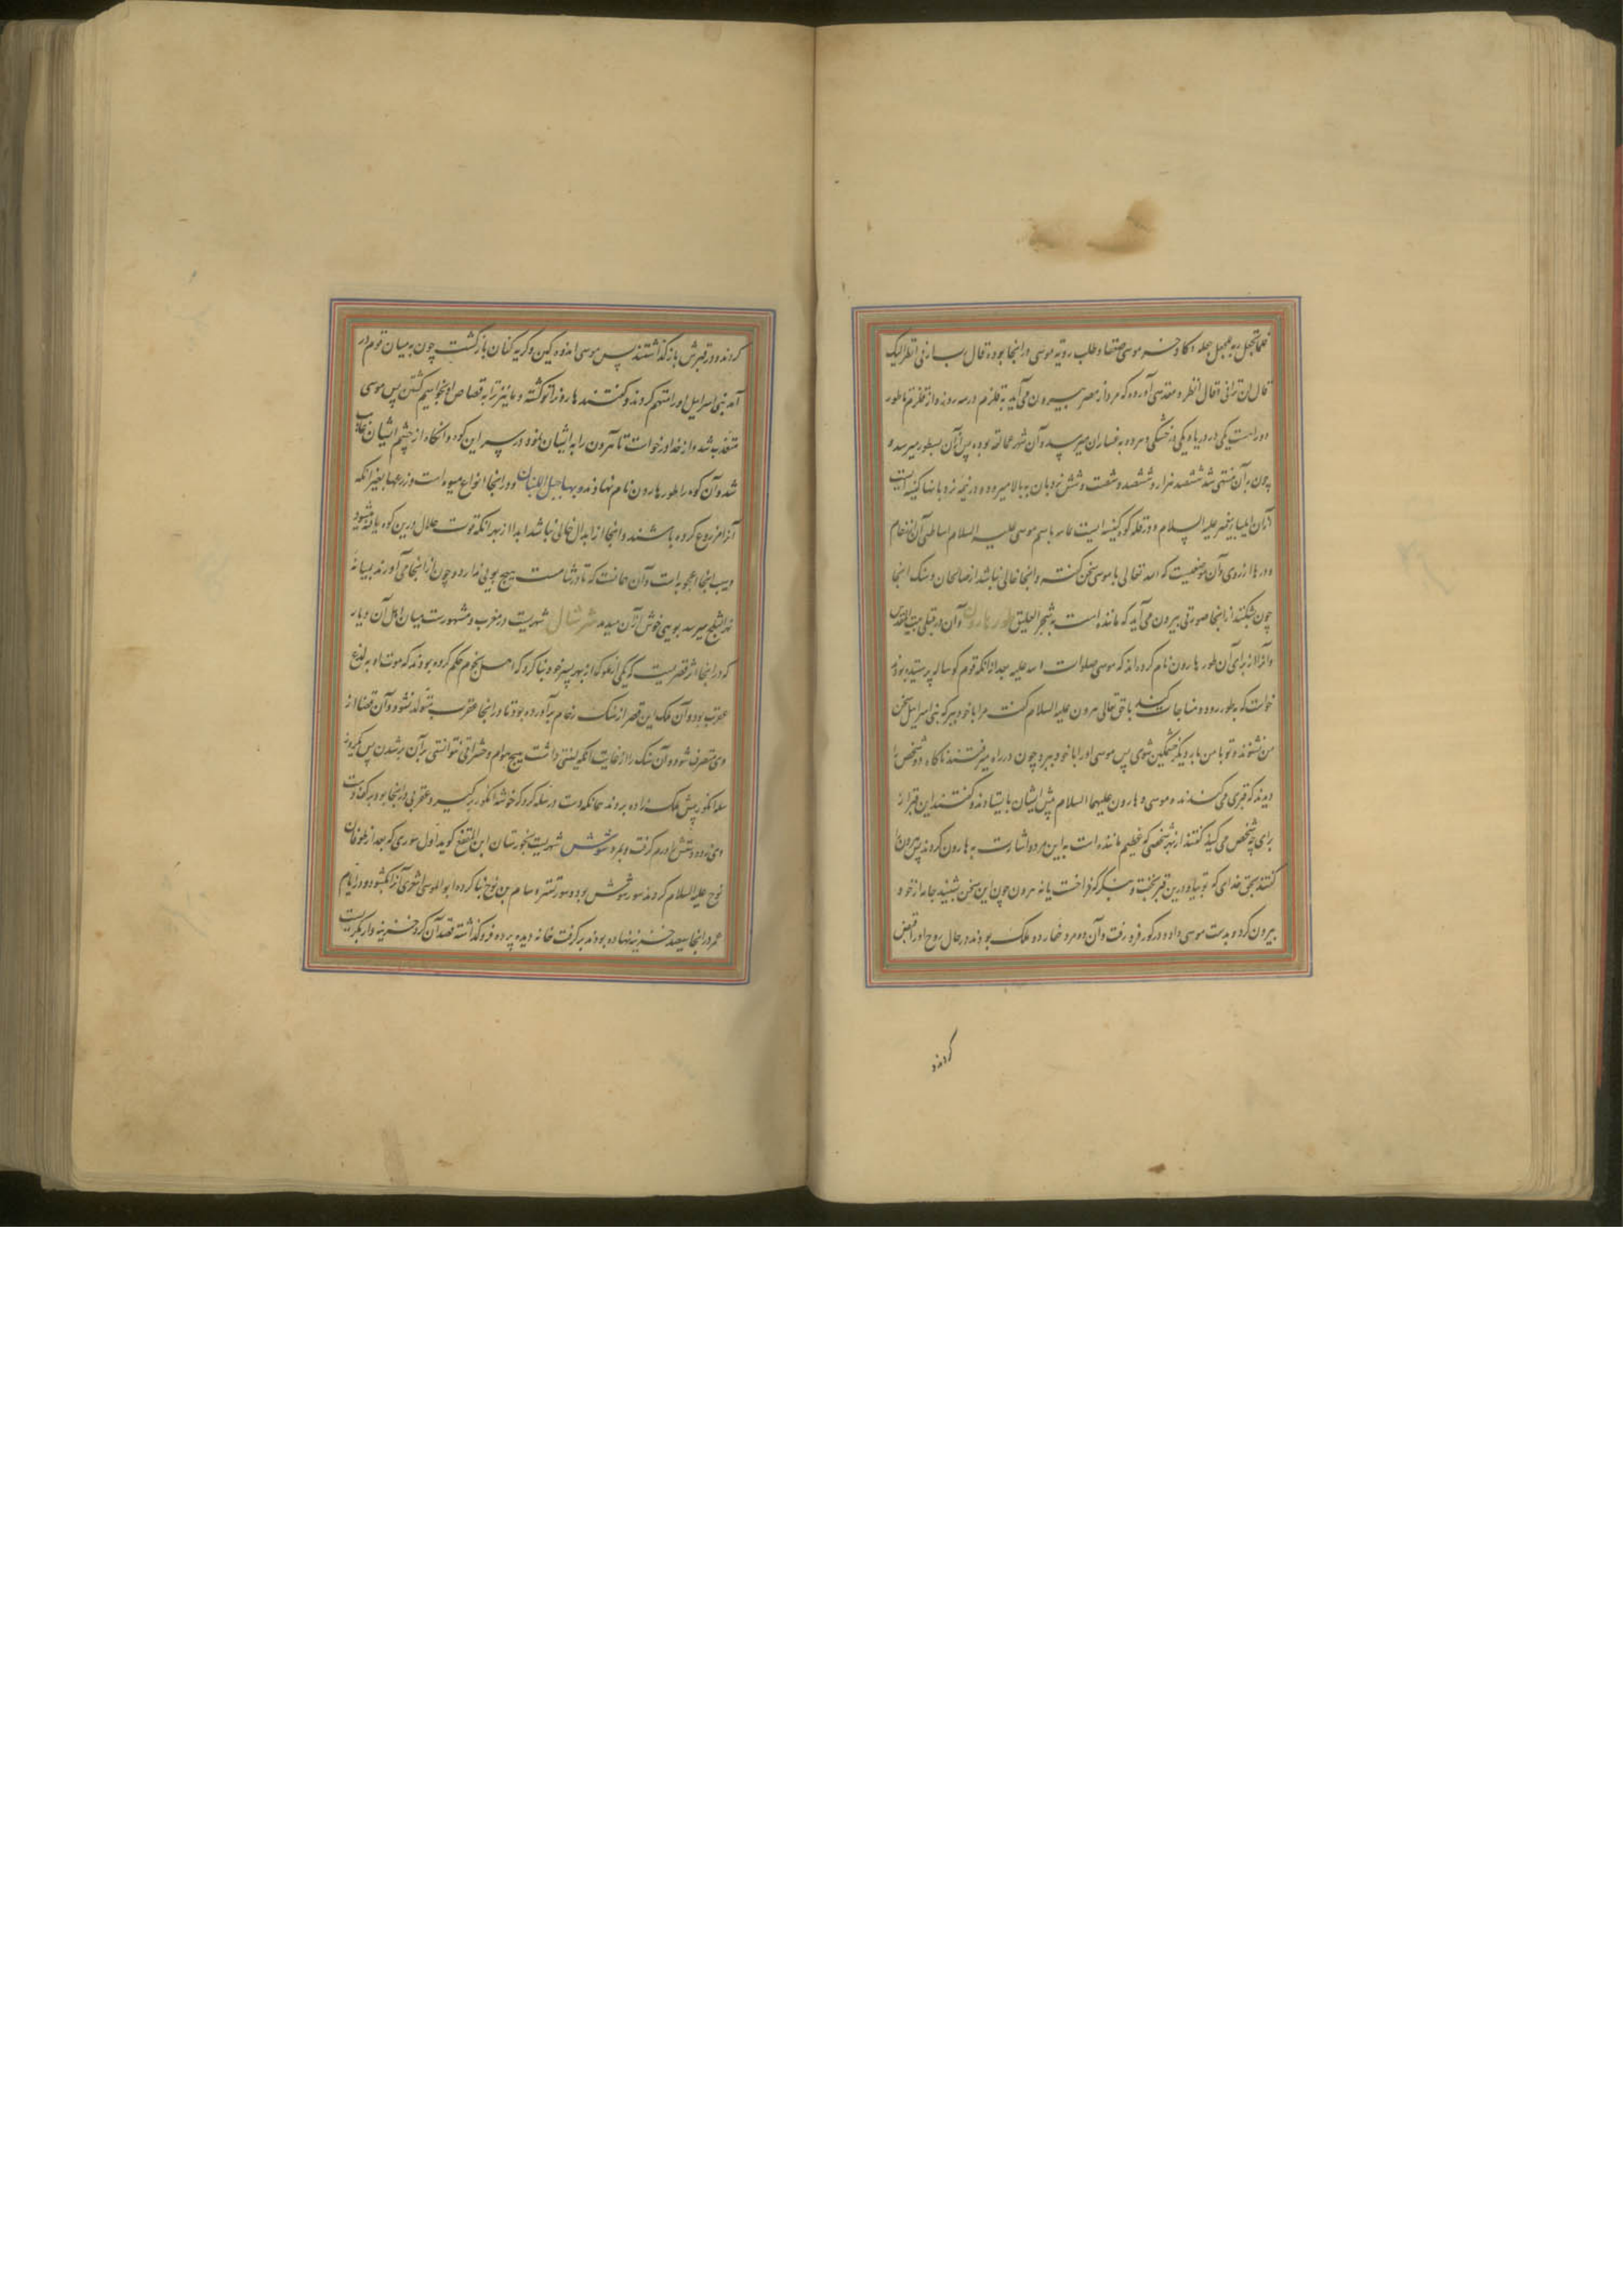 فلما تجلی ربه للجبل جعله دکا و خر موسی صعقا و طلب رویه موسی در اینجا بوده قال رب ارنی انظر الیک
قال لن ترانی و قال انظر و مقدسی آورده که مرد از مصر بیرون می آید به قلزم در سه روز و از قلزم تا طور
دو راهست یکی در دریا و یکی در خشکی و مرد به فاران میرسد و آن شهر عمالقه بوده پس از آن بطور میرسد و
چون بر آن منتهی شد ششهزار و ششصد و شصت و شش نردبان به بالا میرود و در نیمه نردبانها کنیسه ایست
از آن ایلیا پیغمبر علیه السلام و در قله کوه کنیسه ایست عامر باسم موسی علیه السلام اساطین آن از رخام
و درها از روی و آن موضعیست که الله تعالی با موسی سخن گفته و اینجا خالی نباشد از صالحان و سنک اینجا
چون بشکنند از اینجا صورتی بیرون می آید که مانند است به شجر العلیق طور هارون و آن در قبلی بیت المقدس
و آنرا از برای آن طور هارون نام کرده اند که موسی صلوات الله علیه بعد از انکه قوم کوساله پرستیده بودند
خواست که به طور رود و مناجات کند با حق تعالی هرون علیه السلام کفت مرا با خود ببر که بنی اسرائیل سخن
من نشنوند و تو با من بار دیگر خشمگین شوی پس موسی او را با خود ببرد چون در راه میرفتند ناکاه دو شخص را
دیدند که قبری می کندند موسی و هارون علیهما السلام پیش ایشان بایستادند و کفتند این قبر از
برای چه شخص می کنید کفتند از بهر شخصی که عظیم مانند است به این مرد و اشارت به هارون کردند پس هرون را
کفتند بحق خدای که تو بیا و درین قبر بخسب و بنگر که فراخست یا نه هرون چون این سخن شنید جامه از خود
بیرون کرد و بدست موسی داد و در کور فرو رفت و آن دو مرد حفار دو ملک بودند در حال روح او را قبض
کردند
کردند و در قبرش باز گذاشتند پس موسی اندوه کین و گریه کنان بازگشت چون به میان قوم در
آمد بنی اسرائیل او را متهم کردند و کفتند هارون را تو کشته و ما نیز ترا به قصاص او بخواهیم کشتن پس موسی
متغیر شد و از خدا درخواست تا هرون را به ایشان نمود در سر این کوه و انکاه از چشم ایشان غایب
شد و آن کوه را طور هارون نام نهادند و بها جبل اللبنان و در اینجا انواع میوه است و زرعها بغیر انکه
آنرا مزروع کرده باشند و اینجا از ابدال خالی نباشد ابدا از بهر انکه قوت حلال درین کوه یافته میشود
و سیب اینجا اعجوبه است و آن چنانست که تا در شامست هیچ بویی ندارد و چون از اینجا می آورند بمیانه
نهر الثلج میرسد بویی خوش از آن میدمد شهر شنال شهریست در مغرب و مشهورست میان اهل آن دیار
که در اینجا اثر قصریست که یکی از ملوک از بهر پسر خود بنا کرد که اهل نجوم حکم کرده بودند که موت او به لدغ
عقرب بود و آن ملک این قصر از سنک رخام برآورده بود تا در اینجا عقرب متولد نشود و آن قضا از
وی منصرف شود و آن سنک را از غایت انکه لینتی داشت هیچ هوام و حشراتی نتوانستی بر آن بر شدن پس یکروز
سله انکور پیش ملک زاده بردند همانکه دست در سله کرد که خوشه انکور بر کیرد عقربی در اینجا بود بر کف دست
وی زد و دستش ورم کرفت و بمرد شوش شهریست بخوزستان ابن المقفع کوید اول سوری که بعد از طوفان
نوح علیه السلام کردند سور شوش بود و سور تستر و سام بن نوح بنا کرده ابو الموسی اشعری آنرا بگشود و در ایام
عمر در اینجا سیصد خزینه نهاده بودند بر کرفت خانه دید پرده فرو گذاشته قصد آن کرد خزینه دار بگریست